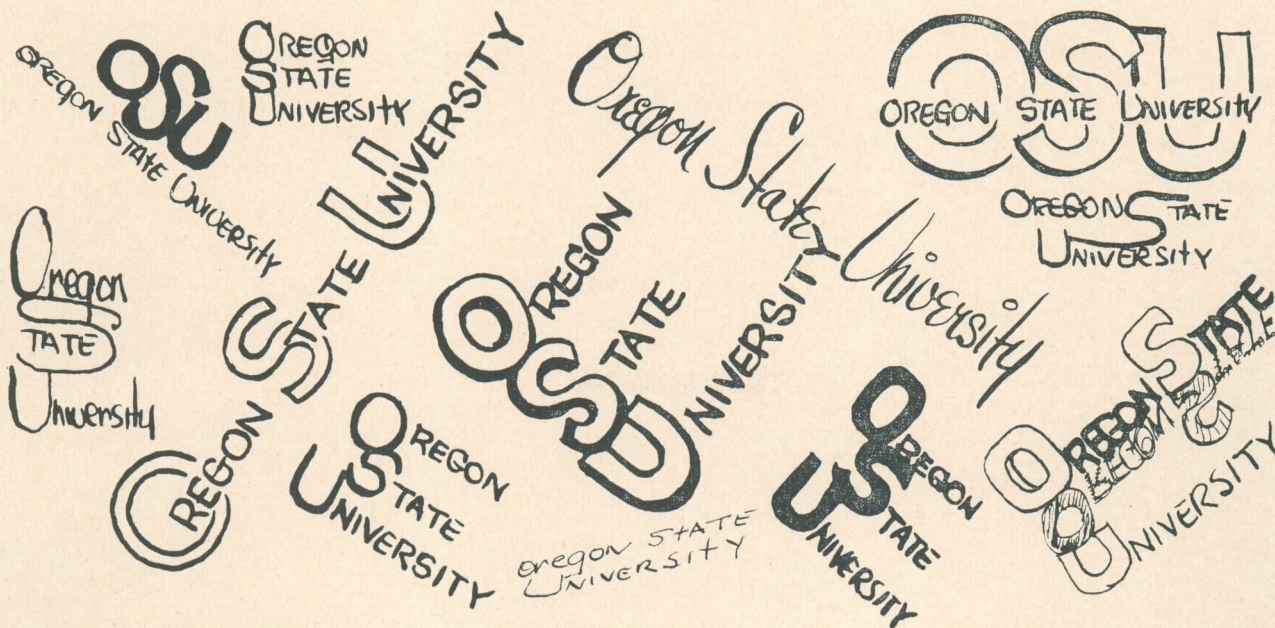 OSU
OREGON STATE UNIVERSITY
OREGON
STATE
UNIVERSITY
OREGON STATE UNIVERSITY
Oregon State University
OSU
OREGON STATE UNIVERSITY
OREGON STATE
UNIVERSITY
Oregon
STATE
University
OREGON
STATE
UNIVERSITY
OREGON
STATE
UNIVERSITY
oregon STATE
UNIVERSITY
OREGON
STATE
UNIVERSITY
OREGON STATE
UNIVERSITY